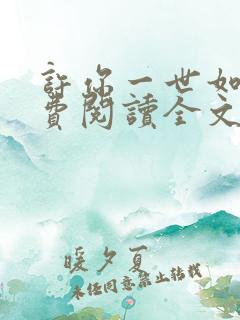 許你一世如
費閱讀全文
暖夕夏
未經同意禁止轉載